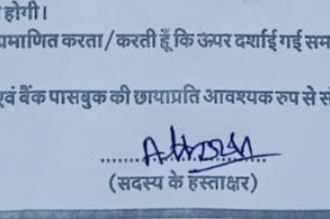 होगी।
प्रमाणित करता/करती हूँ कि ऊपर दर्शाई गई सम
एवं बैंक पासबुक की छायाप्रति आवश्यक रुप से सं
(सदस्य के हस्ताक्षर)